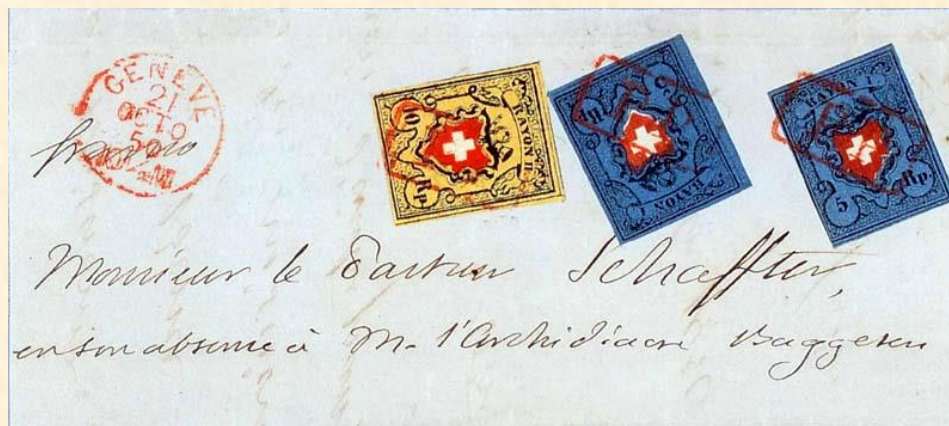 GENÈVE
21
OCTO
50
franco
10 Rp.
RAYON II
RAYON I
5 Rp.
RAYON I
Monsieur le Pasteur Schaffter,
en son absence à M. l'Archidiacre Baggesen